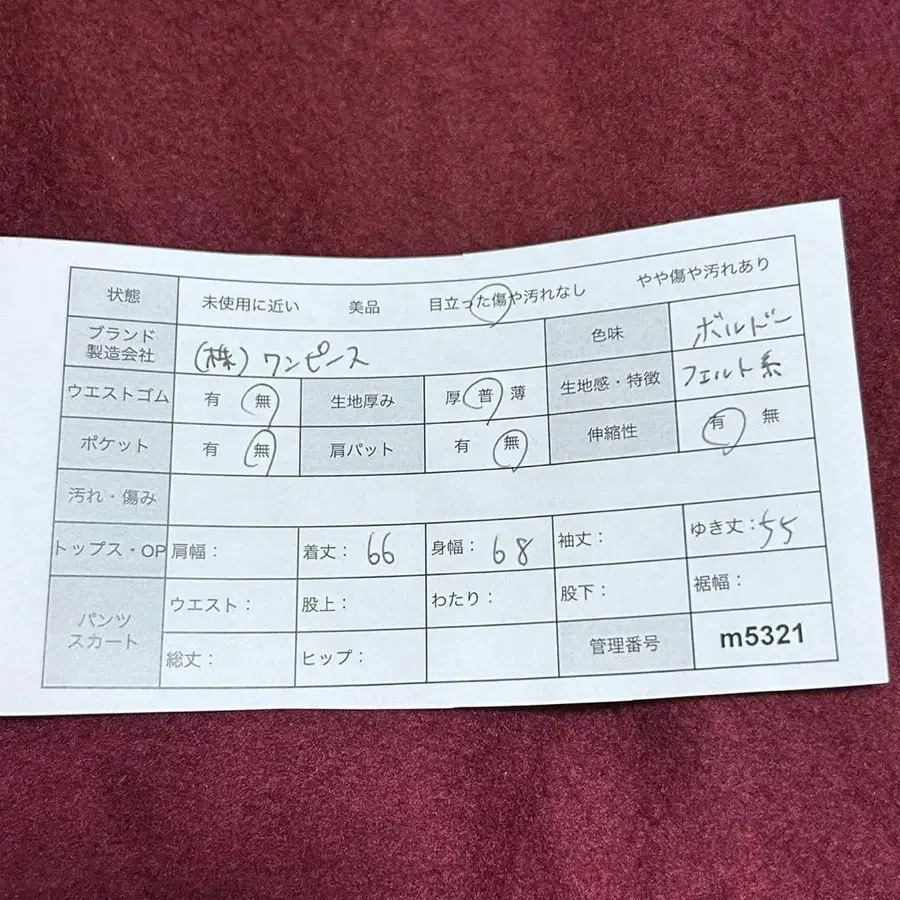 状態 未使用に近い 美品 目立った傷や汚れなし やや傷や汚れあり
ブランド 製造会社 (株)ワンピース 色味 ボルドー
ウエストゴム 有 無 生地厚み 厚 普 薄 生地感・特徴 フェルト系
ポケット 有 無 肩パット 有 無 伸縮性 有 無
汚れ・傷み
トップス・OP 肩幅: 着丈: 66 身幅: 68 袖丈: ゆき丈: 55
パンツ スカート ウエスト: 股上: わたり: 股下: 裾幅:
総丈: ヒップ: 管理番号 m5321